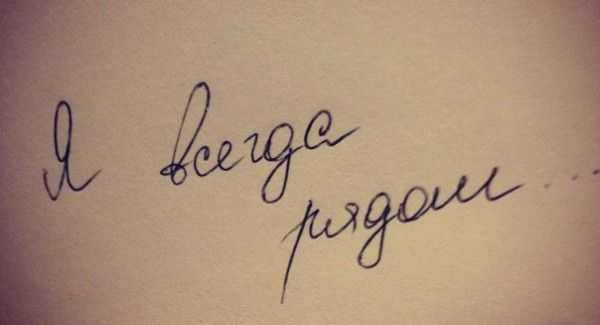 Я всегда
рядом...